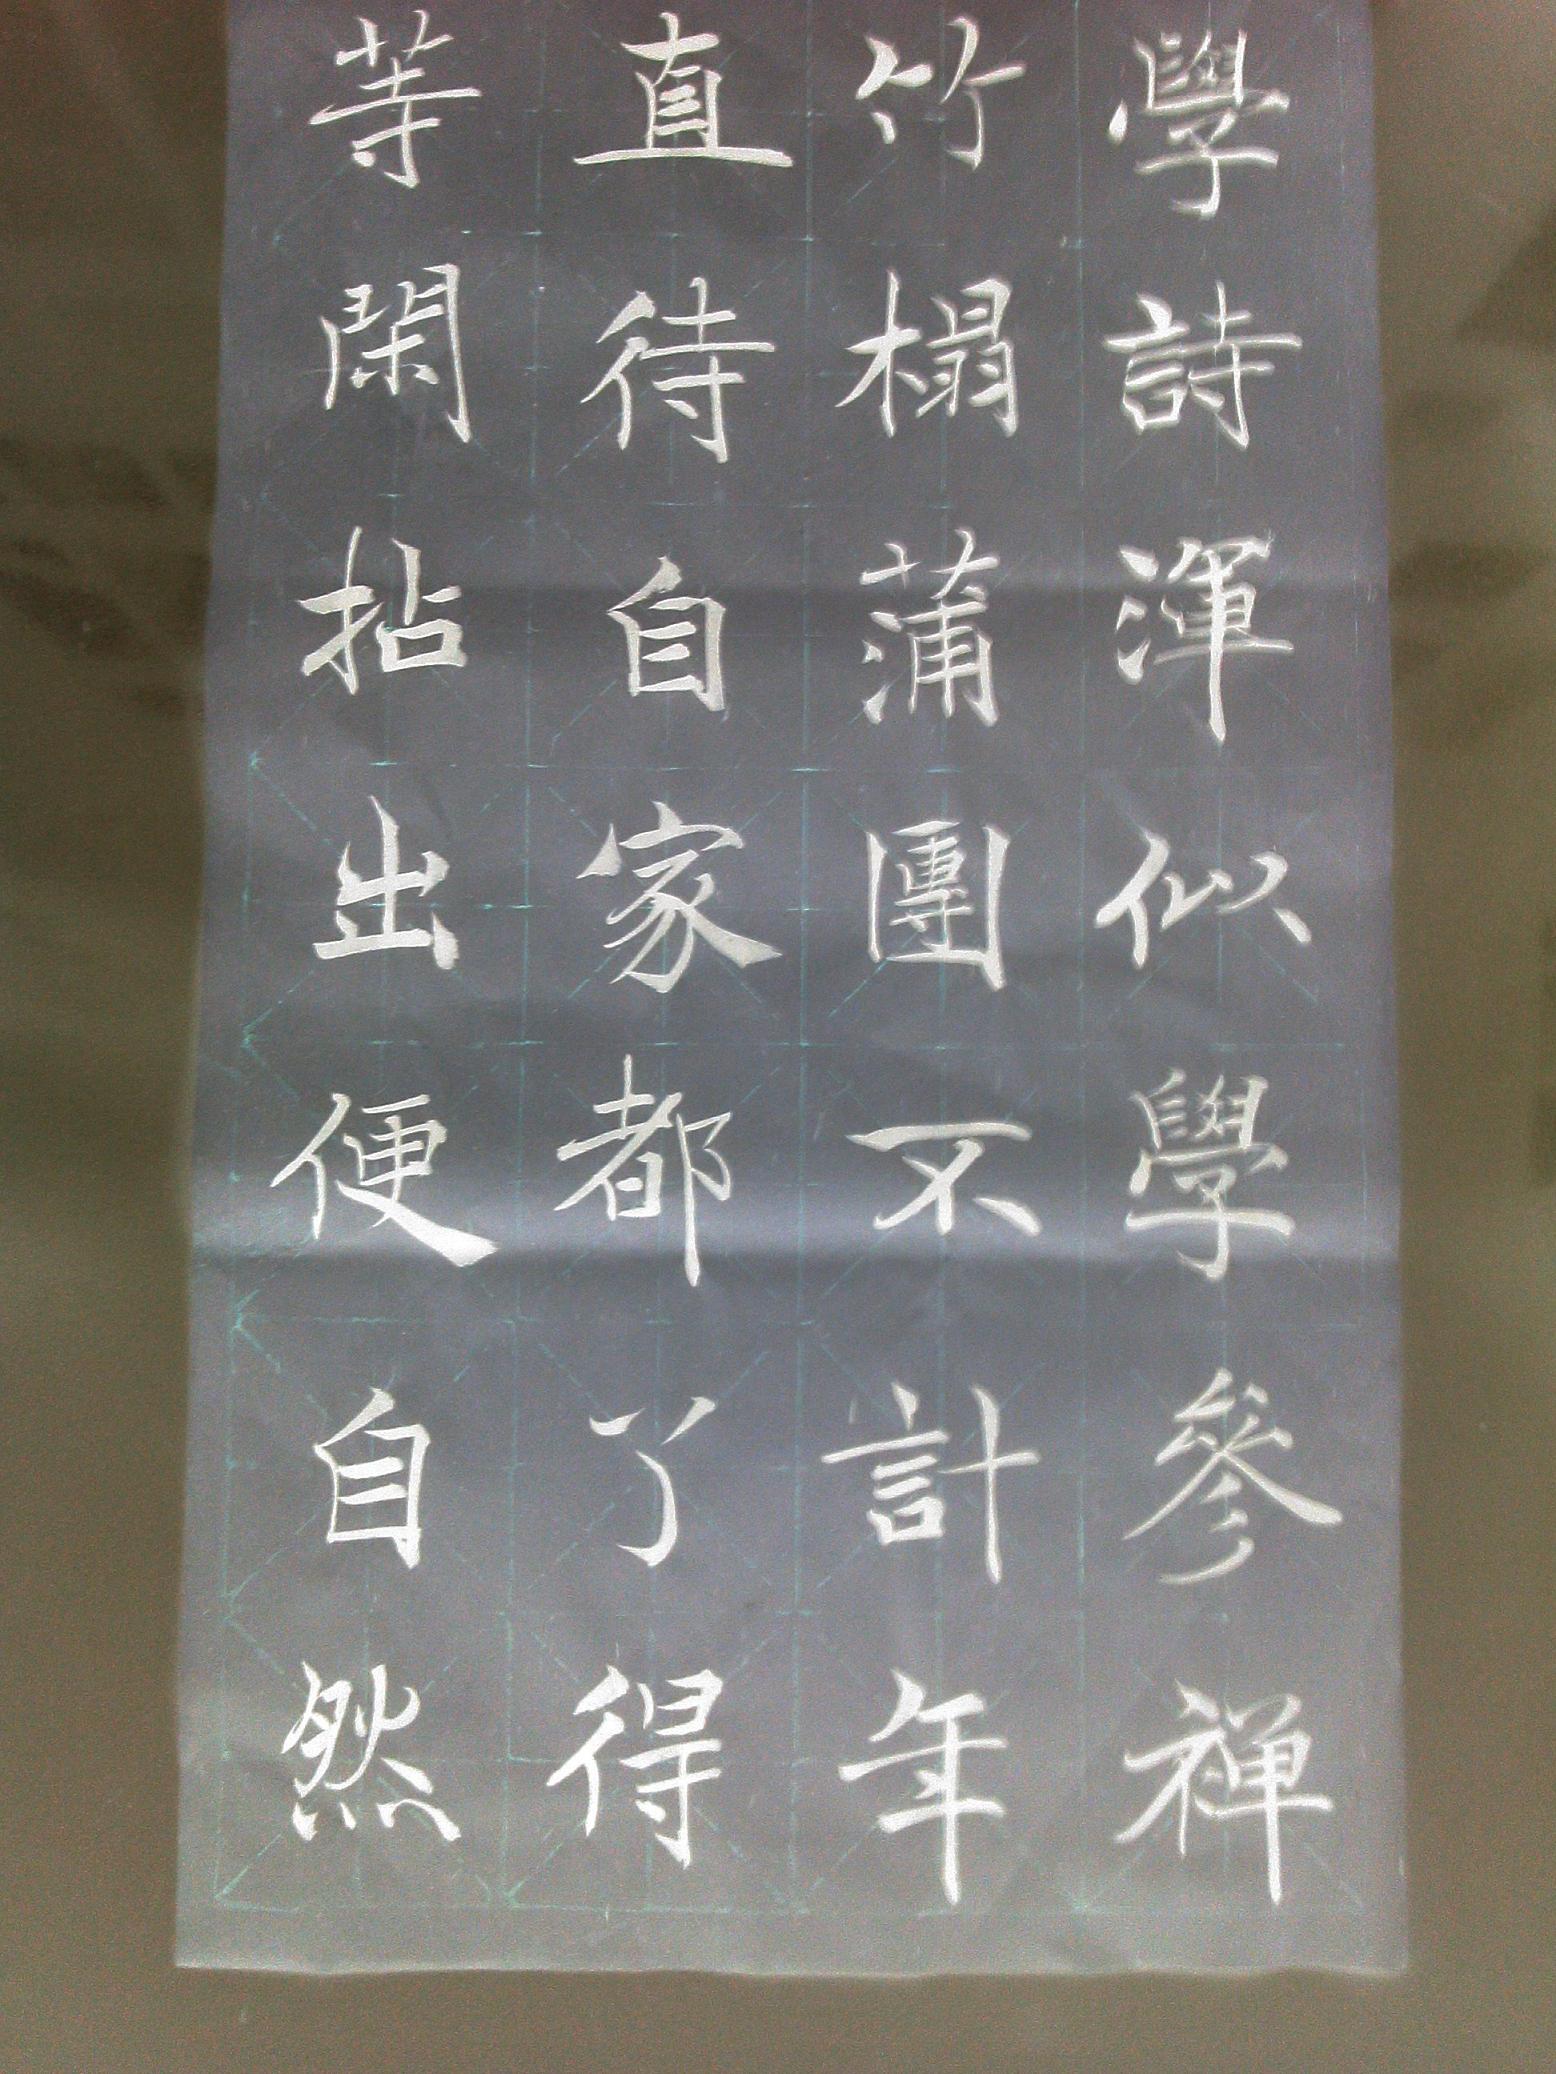 學詩渾似學參禪
竹榻蒲團不計年
直待自家都了得
等閑拈出便自然